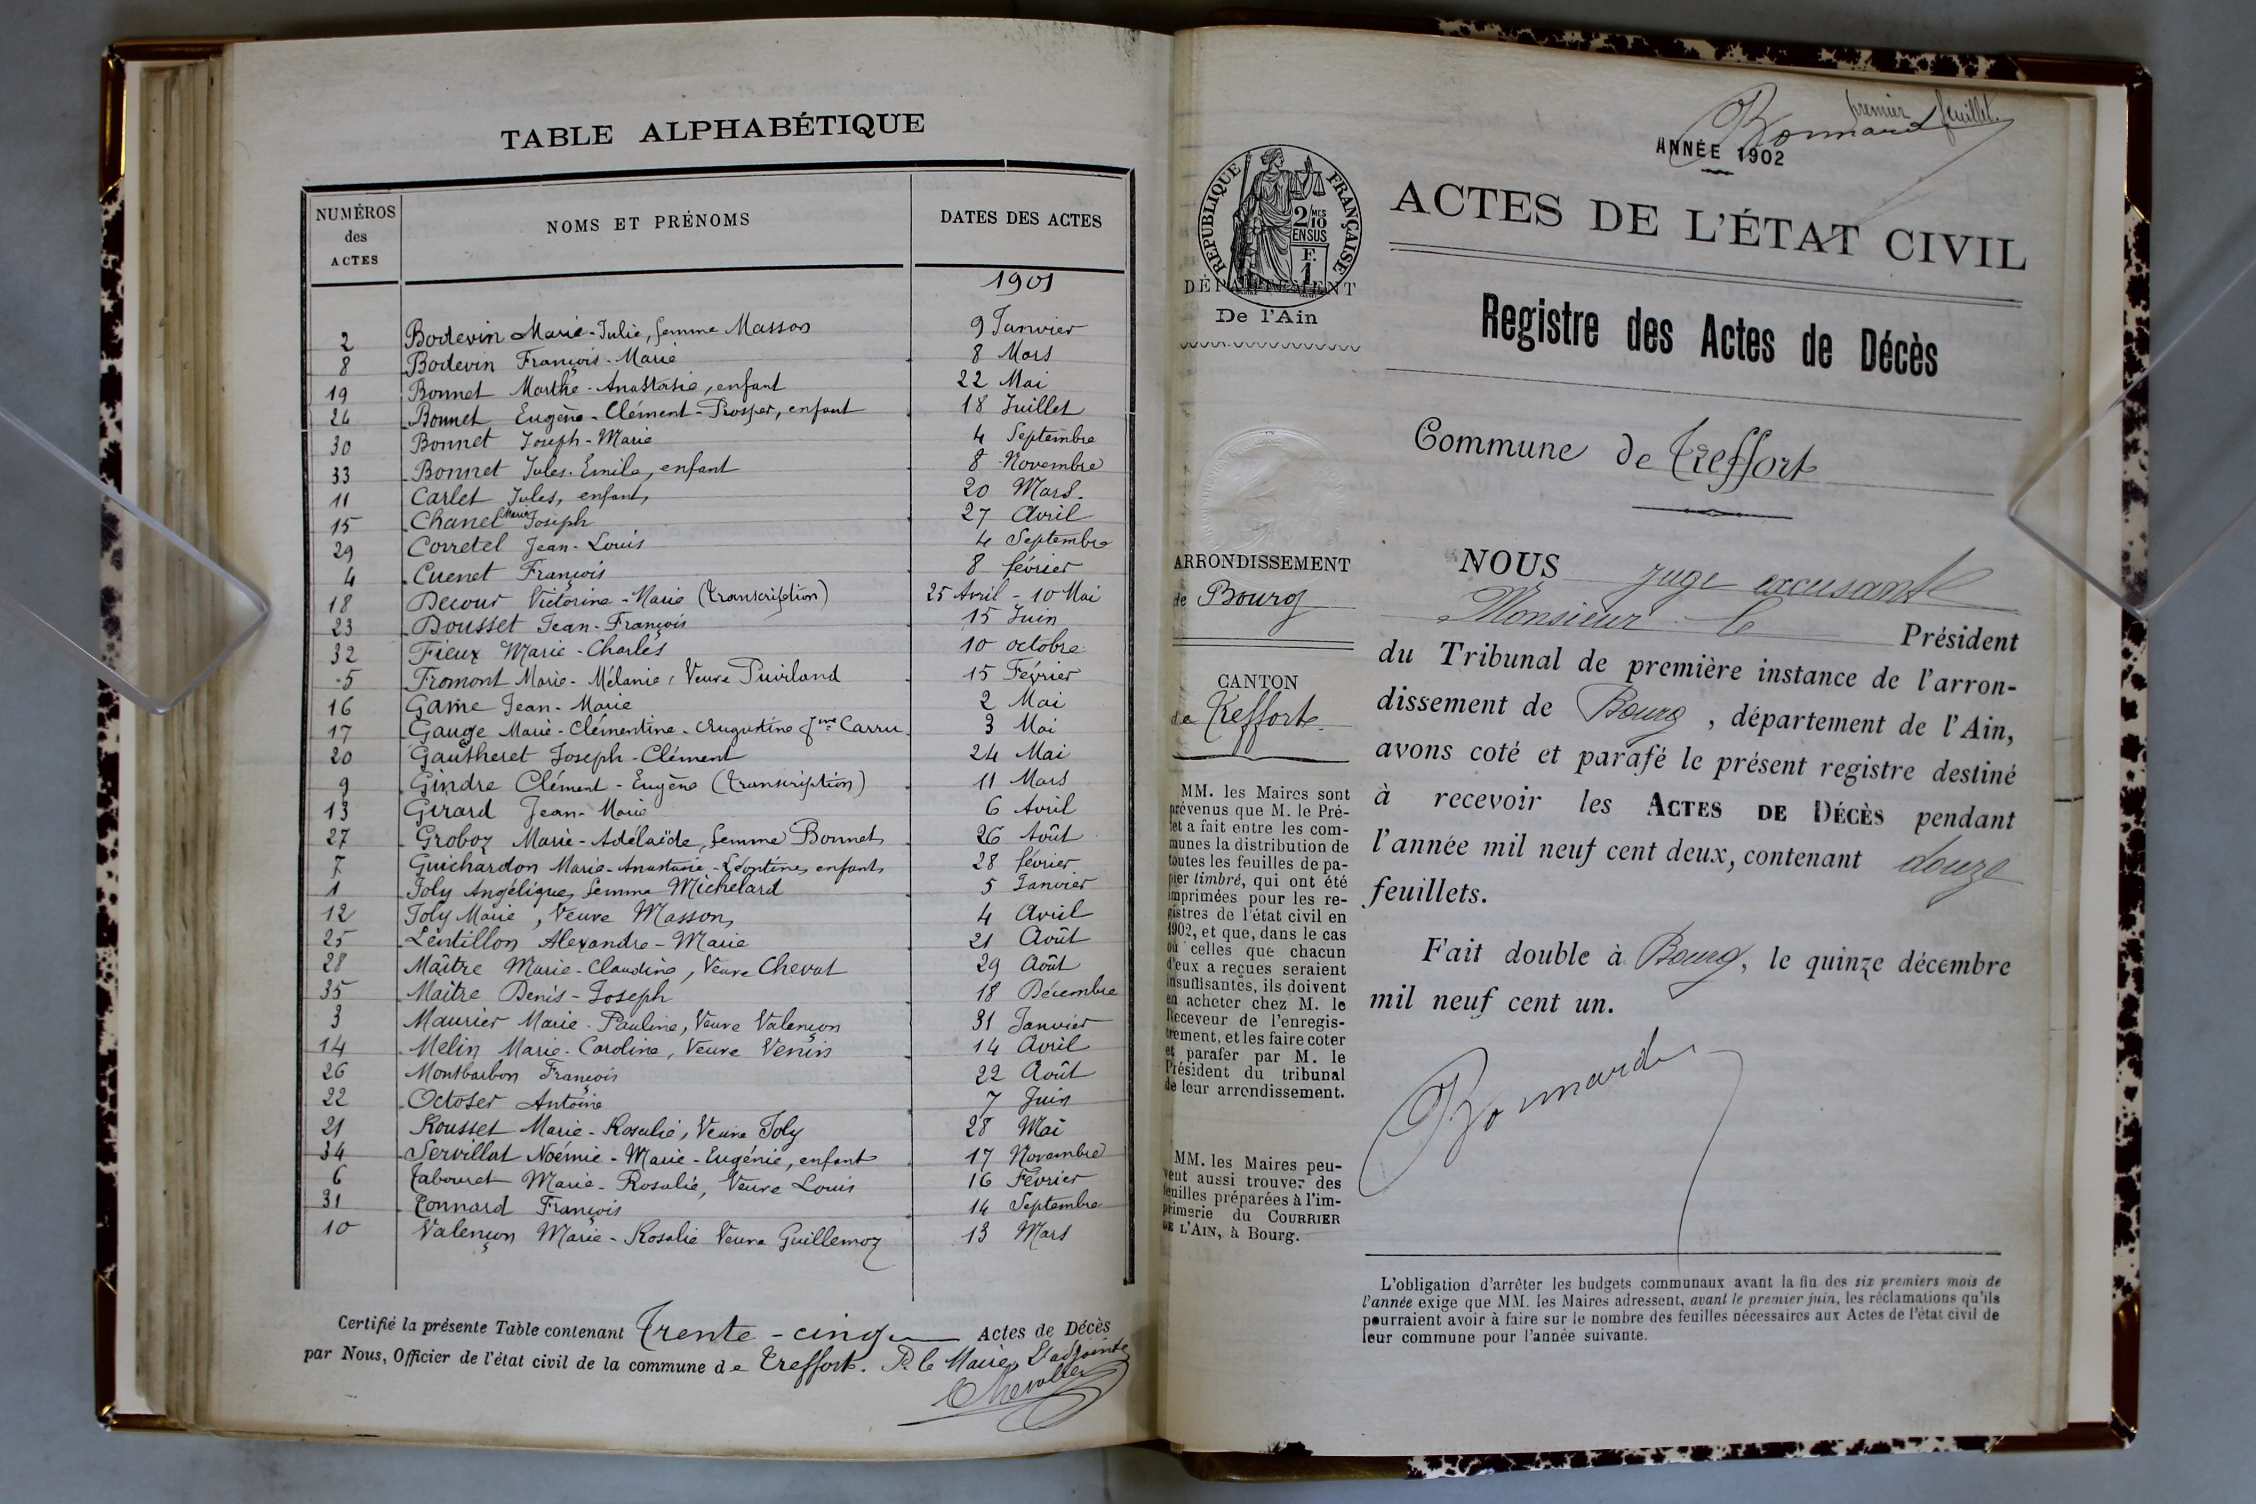 TABLE ALPHABÉTIQUE
NUMÉROS des ACTES NOMS ET PRÉNOMS DATES DES ACTES
1901
2 Bodevin Marie-Julie, femme Masson 9 Janvier
8 Bodevin François-Marie 8 Mars
19 Bonnet Marthe-Anastasie, enfant 22 Mai
24 Bonnet Eugène-Clément-Prosper, enfant 18 Juillet
30 Bonnet Joseph-Marie 4 Septembre
33 Bonnet Jules-Emile, enfant 8 Novembre
11 Carlet Jules, enfant 20 Mars.
15 Chanel Marie Joseph 27 Avril
29 Corretel Jean-Louis 4 Septembre
4 Cuenet François 8 février
18 Decour Victorine-Marie (transcription) 25 Avril - 10 Mai
23 Dousset Jean-François 15 Juin
32 Fieux Marie-Charles 10 octobre
5 Fromont Marie-Mélanie, Veuve Puviland 15 Février
16 Game Jean-Marie 2 Mai
17 Gauge Marie-Clémentine-Augustine fme Carru 3 Mai
20 Gautheret Joseph-Clément 24 Mai
9 Gindre Clément-Eugène (transcription) 11 Mars
13 Girard Jean-Marie 6 Avril
27 Groboz Marie-Adélaïde, femme Bonnet 26 Août
7 Guichardon Marie-Anastasie-Léontine, enfant 28 février
1 Joly Angélique, femme Michelard 5 Janvier
12 Joly Marie, Veuve Masson 4 Avril
25 Lentillon Alexandre-Marie 21 Août
28 Maître Marie-Claudine, Veuve Chevat 29 Août
35 Maître Denis-Joseph 18 Décembre
3 Maurier Marie-Pauline, Veuve Valençon 31 Janvier
14 Melin Marie-Caroline, Veuve Venin 14 Avril
26 Montbarbon François 22 Août
22 Octoser Antoine 7 Juin
21 Rousset Marie-Rosalie, Veuve Joly 28 Mai
34 Servillat Noémie-Marie-Eugénie, enfant 17 Novembre
6 Tabouret Marie-Rosalie, Veuve Louis 16 Février
31 Tonnard François 14 Septembre
10 Valençon Marie-Rosalie Veuve Guillemoz 13 Mars
Certifié la présente Table contenant Trente-cinq Actes de Décès
par Nous, Officier de l'état civil de la commune de Treffort. P. le Maire, L'adjoint
Chevallier
premier feuillet.
Bonnard
ANNÉE 1902
RÉPUBLIQUE FRANÇAISE
2/10 MES
EN SUS
F.
1
DÉPARTEMENT
De l'Ain
ARRONDISSEMENT
de Bourg
CANTON
de Treffort
MM. les Maires sont
prévenus que M. le Pré-
fet a fait entre les com-
munes la distribution de
toutes les feuilles de pa-
pier timbré, qui ont été
imprimées pour les re-
gistres de l'état civil en
1902, et que, dans le cas
où celles que chacun
d'eux a reçues seraient
insuffisantes, ils doivent
en acheter chez M. le
Receveur de l'enregis-
trement, et les faire coter
et parafer par M. le
Président du tribunal
de leur arrondissement.
MM. les Maires peu-
vent aussi trouver des
feuilles préparées à l'im-
primerie du COURRIER
DE L'AIN, à Bourg.
ACTES DE L'ÉTAT CIVIL
Registre des Actes de Décès
Commune de Treffort
NOUS juge excusant
Monsieur le Président
du Tribunal de première instance de l'arron-
dissement de Bourg, département de l'Ain,
avons coté et parafé le présent registre destiné
à recevoir les ACTES DE DÉCÈS pendant
l'année mil neuf cent deux, contenant douze
feuillets.
Fait double à Bourg, le quinze décembre
mil neuf cent un.
Bonnard
L'obligation d'arrêter les budgets communaux avant la fin des six premiers mois de
l'année exige que MM. les Maires adressent, avant le premier juin, les réclamations qu'ils
pourraient avoir à faire sur le nombre des feuilles nécessaires aux Actes de l'état civil de
leur commune pour l'année suivante.